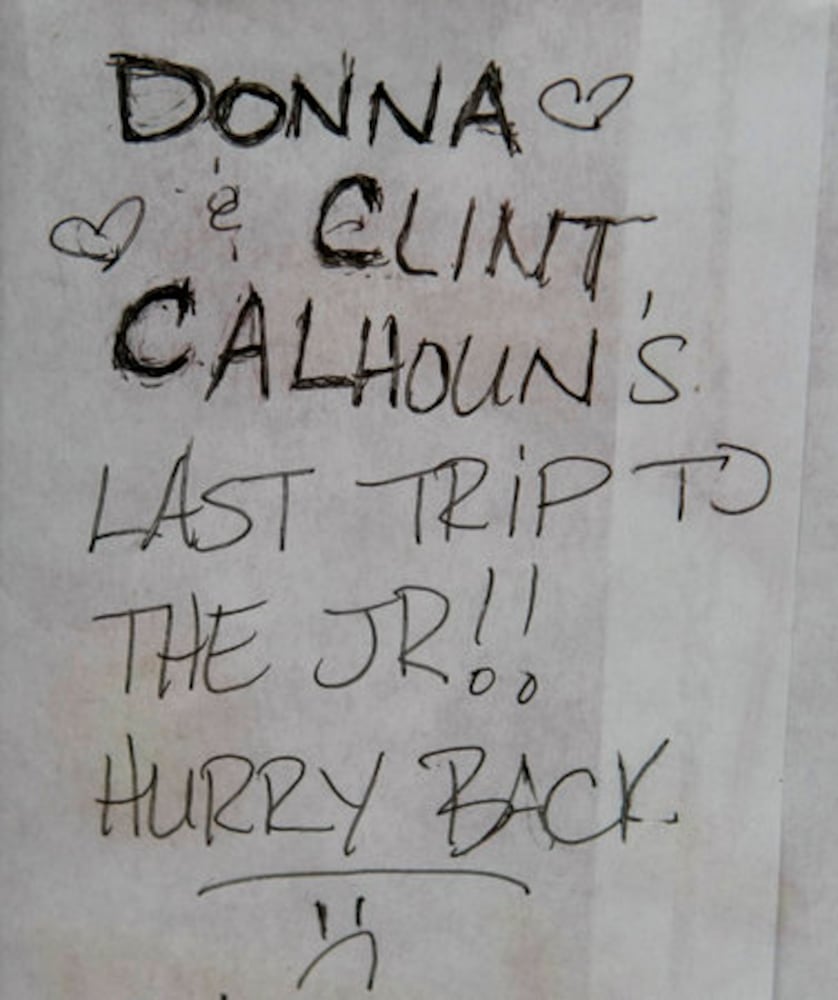 DONNA ♡
♡ & CLINT
CALHOUN'S
LAST TRiP TO
THE JR!!
HURRY BACK